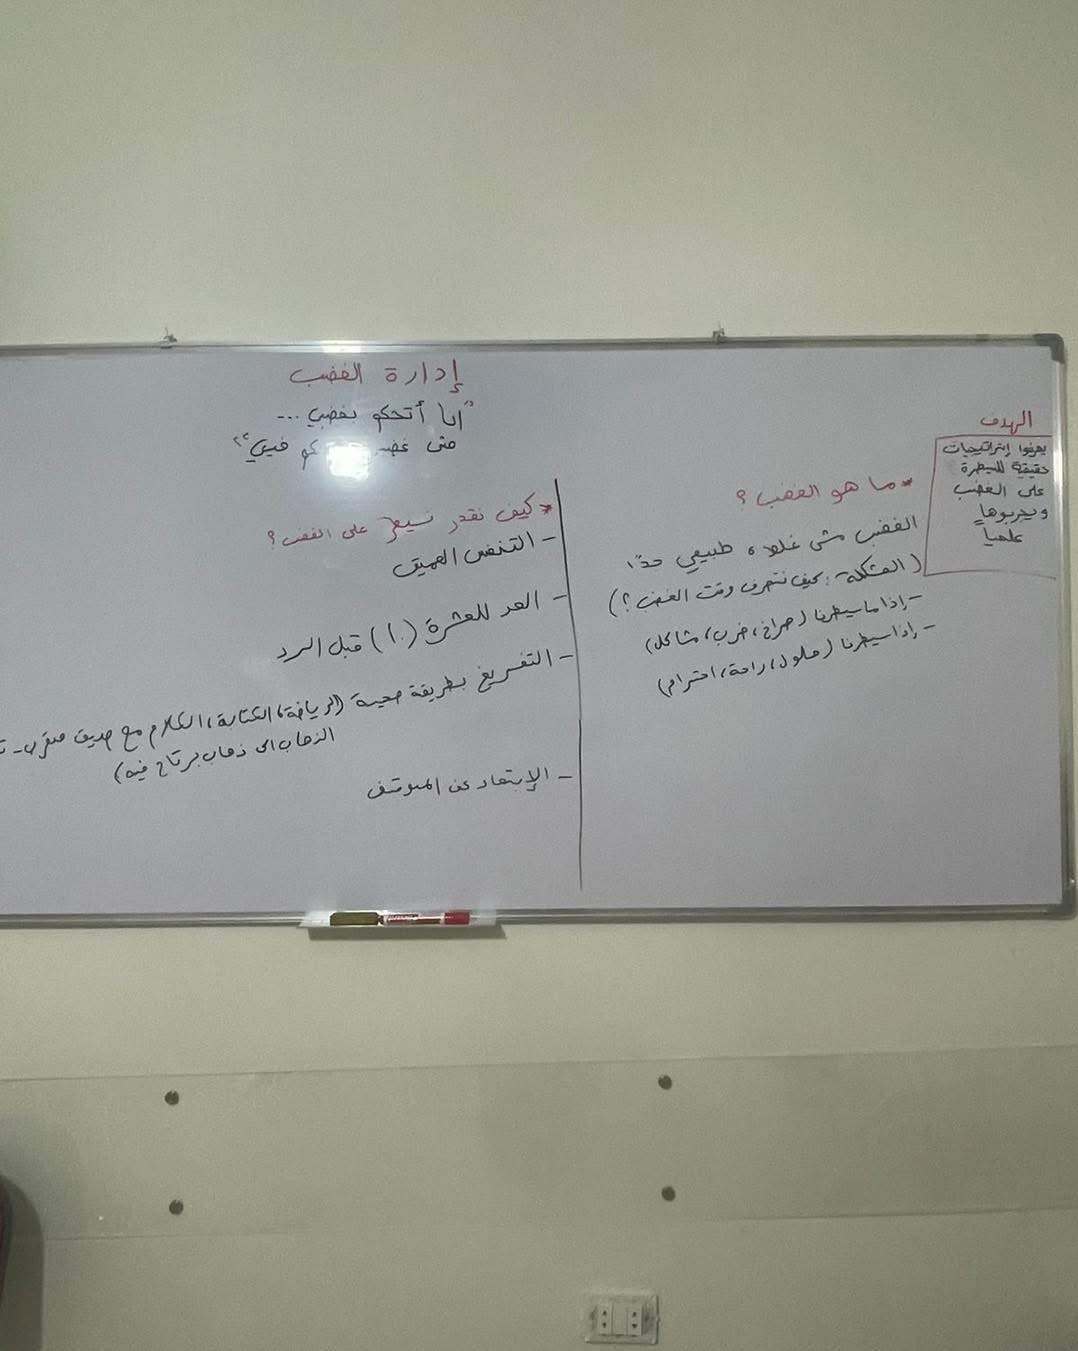 إدارة الغضب
"أنا أتحكم بغضبي ...
مش غضبي كم فيي"
الهدف
يعرفوا إستراتيجيات
حقيقية للسيطرة
على الغضب
ويجربوها
علمياً
* ما هو الغضب؟
الغضب مش غلط، طبيعي جداً
(المشكلة: كيف نتصرف وقت الغضب؟)
- إذا ما سيطرنا (صراخ، ضرب، مشاكل)
- إذا سيطرنا (حلول، راحة، احترام)
* كيف نقدر نسيطر على الغضب؟
- التنفس العميق
- العد للعشرة (١٠) قبل الرد
- التفريغ بطريقة صحية (الرياضة، الكتابة، الكلام مع صديق مقرب -
الذهاب الى برتاح فيه)
- الإبتعاد عن الموقف